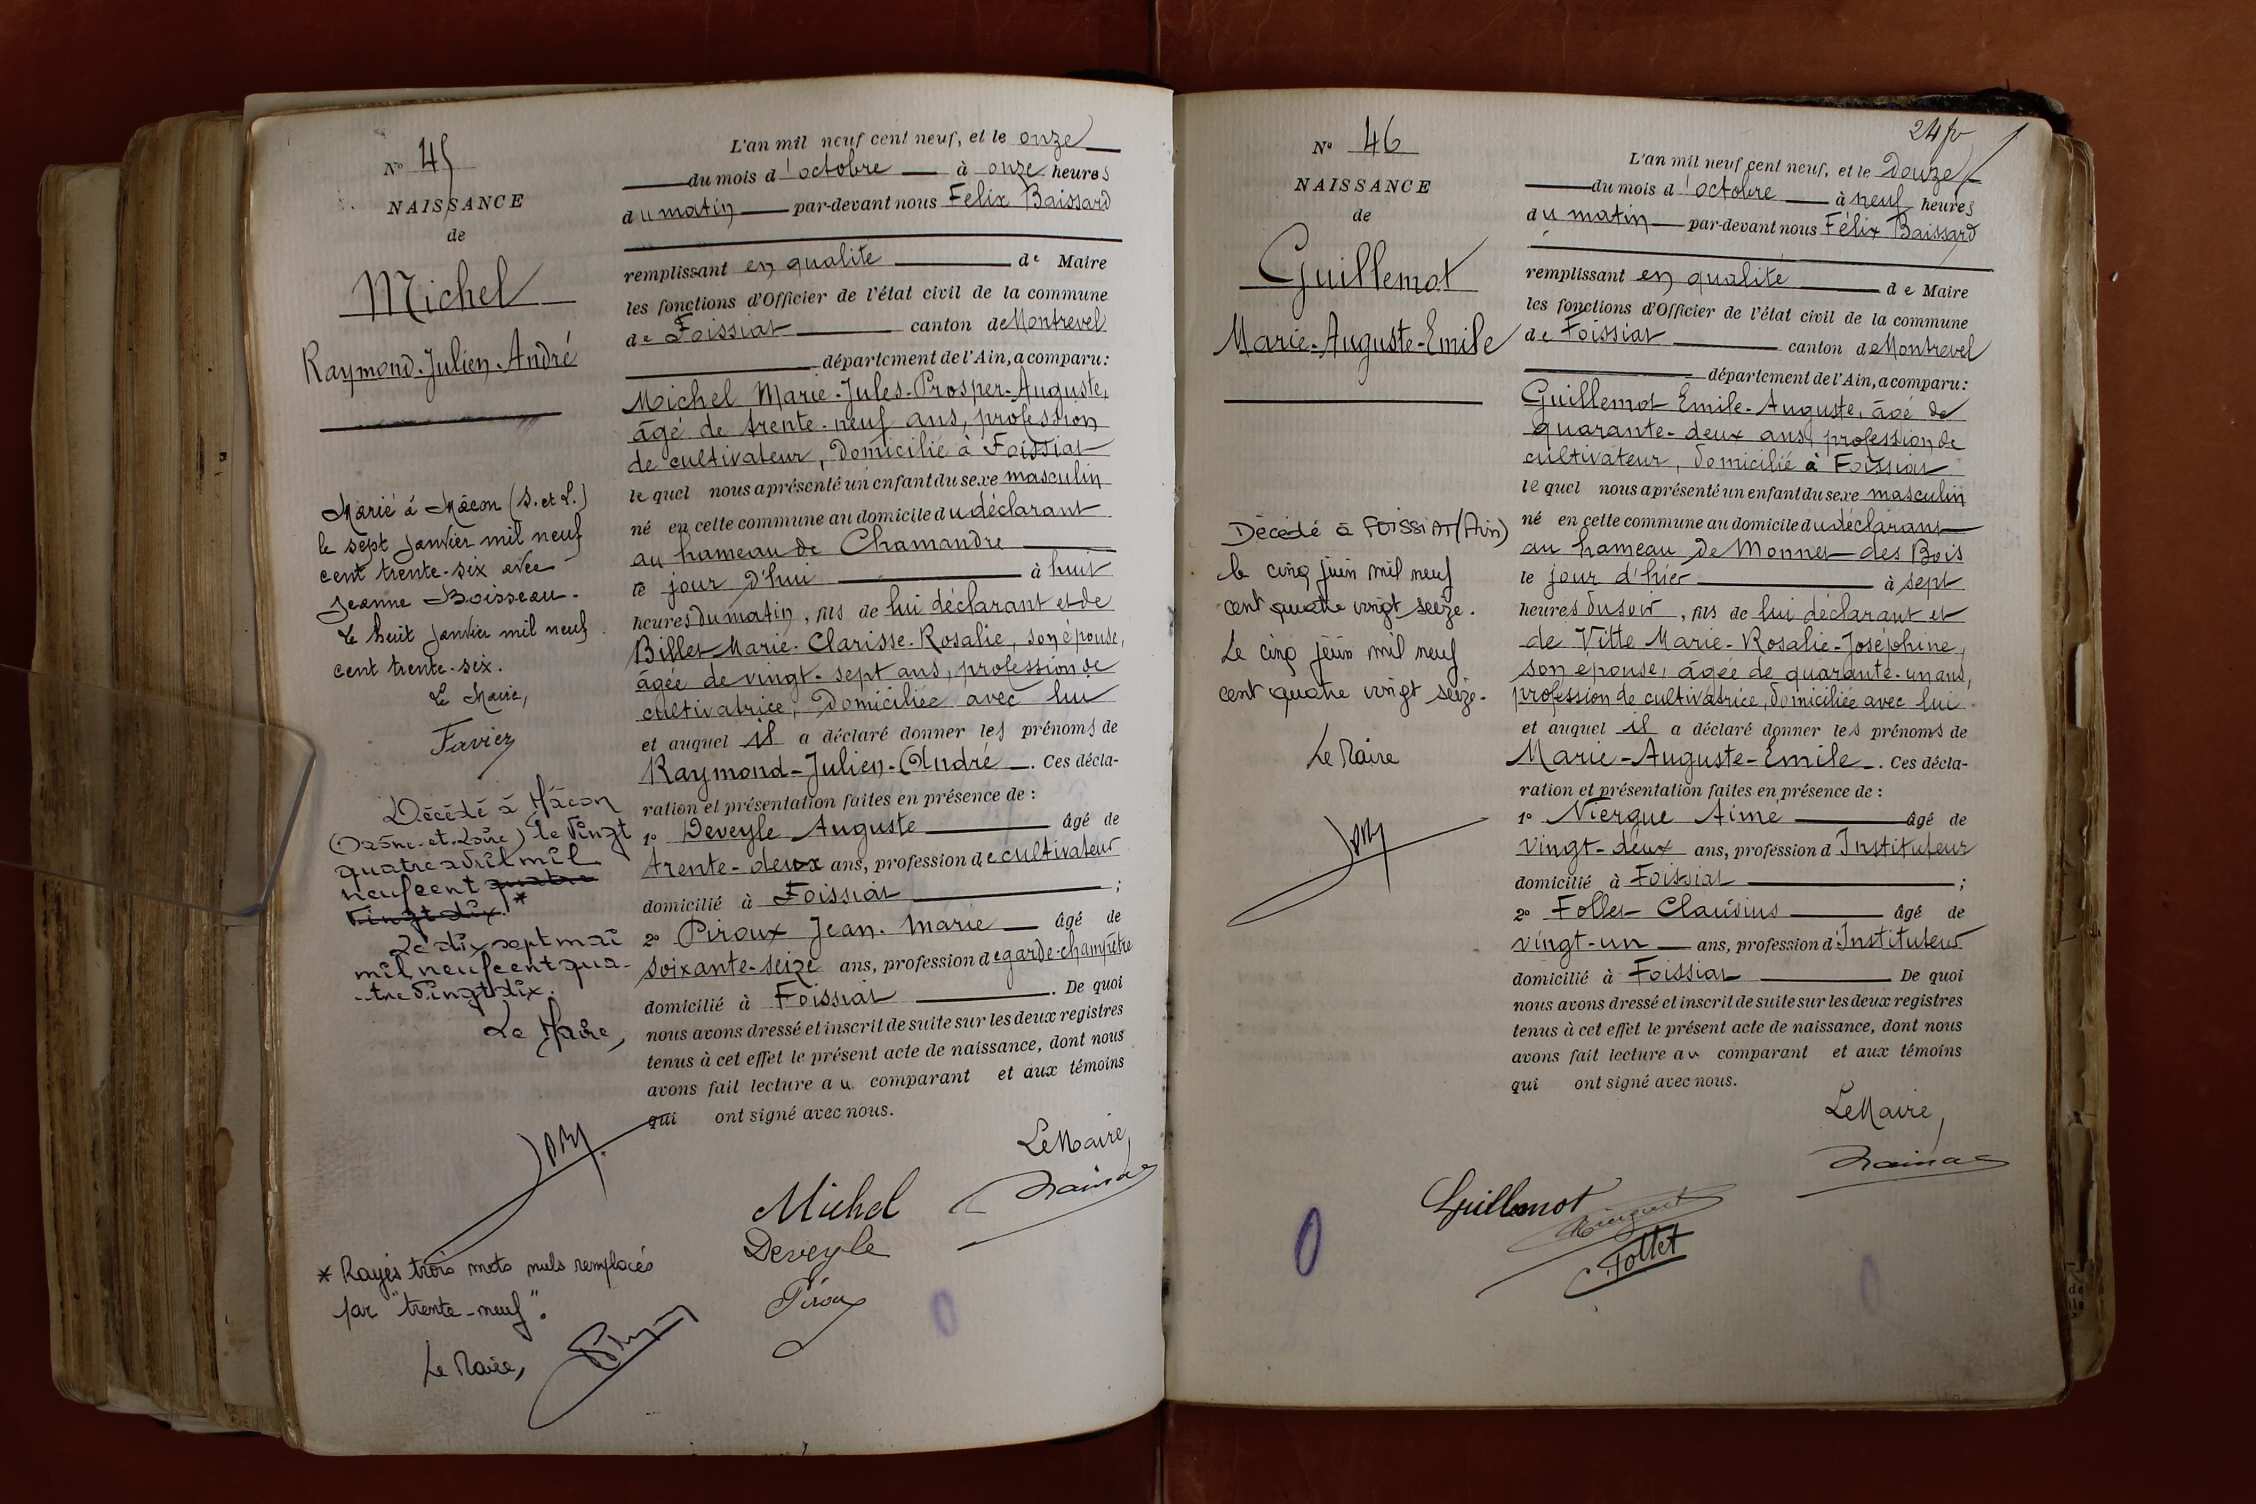 N° 45
NAISSANCE
de
Michel
Raymond-Julien-André
Marié à Mâcon (S. et L.)
le sept janvier mil neuf
cent trente-six avec
Jeanne Boisseau.
Le huit janvier mil neuf
cent trente-six.
Le Maire,
Favier
Décédé à Mâcon
(Saône-et-Loire) le vingt
quatre avril mil
neuf cent quatre
vingt dix.*
Le dix sept mai
mil neuf cent qua-
-tre vingt dix.
Le Maire,
* Rayés trois mots nuls remplacés
par "trente-neuf".
Le Maire,
L'an mil neuf cent neuf, et le onze
du mois d'octobre à onze heures
du matin par-devant nous Félix Baissard
remplissant en qualité de Maire
les fonctions d'Officier de l'état civil de la commune
de Foissiat canton de Montrevel
département de l'Ain, a comparu :
Michel Marie-Jules-Prosper-Auguste,
âgé de trente-neuf ans, profession
de cultivateur, domicilié à Foissiat
lequel nous a présenté un enfant du sexe masculin
né en cette commune au domicile du déclarant
au hameau de Chamandre
le jour d'hui à huit
heures du matin, fils de lui déclarant et de
Billet Marie-Clarisse-Rosalie, son épouse,
âgée de vingt-sept ans, profession de
cultivatrice, domiciliée avec lui
et auquel il a déclaré donner les prénoms de
Raymond-Julien-André. Ces décla-
ration et présentation faites en présence de :
1° Deveyle Auguste âgé de
trente-deux ans, profession de cultivateur
domicilié à Foissiat ;
2° Piroux Jean-Marie âgé de
soixante-seize ans, profession de garde-champêtre
domicilié à Foissiat. De quoi
nous avons dressé et inscrit de suite sur les deux registres
tenus à cet effet le présent acte de naissance, dont nous
avons fait lecture au comparant et aux témoins
qui ont signé avec nous.
Le Maire,
Michel
Deveyle
Piroux
N° 46
NAISSANCE
de
Guillemot
Marie-Auguste-Emile
Décédé à FOISSIAT (Ain)
le cinq juin mil neuf
cent quatre vingt seize.
Le cinq juin mil neuf
cent quatre vingt seize.
Le Maire
L'an mil neuf cent neuf, et le douze
du mois d'octobre à neuf heures
du matin par-devant nous Félix Baissard
remplissant en qualité de Maire
les fonctions d'Officier de l'état civil de la commune
de Foissiat canton de Montrevel
département de l'Ain, a comparu :
Guillemot Emile-Auguste, âgé de
quarante-deux ans, profession de
cultivateur, domicilié à Foissiat
lequel nous a présenté un enfant du sexe masculin
né en cette commune au domicile du déclarant
au hameau de Monnet des Bois
le jour d'hier à sept
heures du soir, fils de lui déclarant et
de Vitte Marie-Rosalie-Joséphine,
son épouse, âgée de quarante-un ans,
profession de cultivatrice, domiciliée avec lui
et auquel il a déclaré donner les prénoms de
Marie-Auguste-Emile. Ces décla-
ration et présentation faites en présence de :
1° Aimé âgé de
vingt-deux ans, profession d'Instituteur
domicilié à Foissiat ;
2° Follet Clausius âgé de
vingt-un ans, profession d'Instituteur
domicilié à Foissiat De quoi
nous avons dressé et inscrit de suite sur les deux registres
tenus à cet effet le présent acte de naissance, dont nous
avons fait lecture au comparant et aux témoins
qui ont signé avec nous.
Le Maire,
Guillemot
Follet